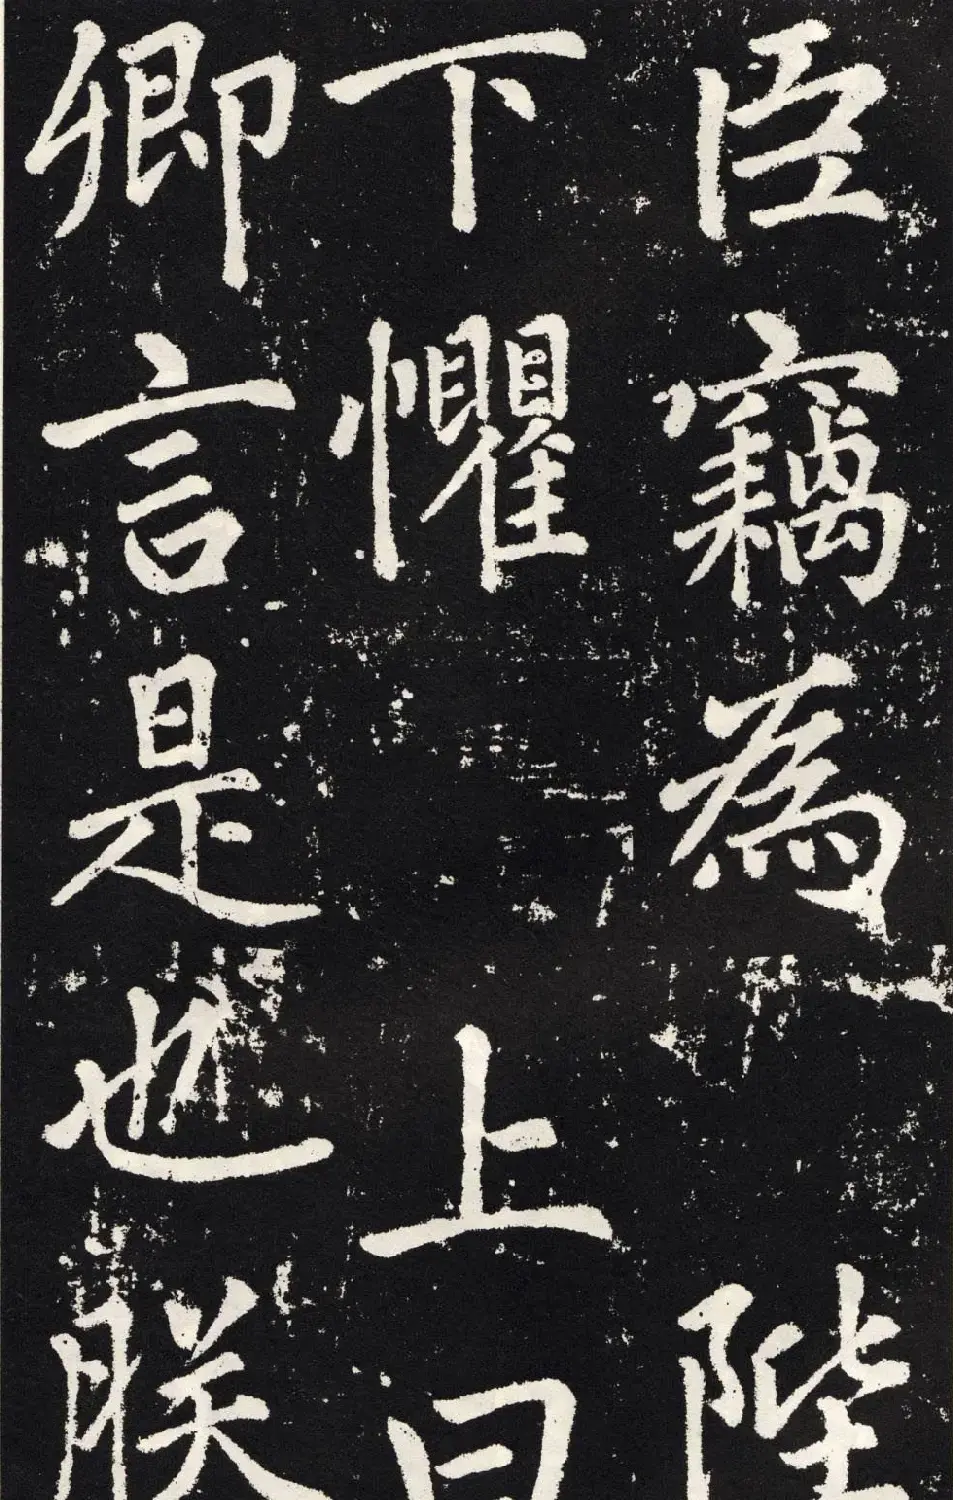 臣竊為陛
下懼上曰
卿言是也朕